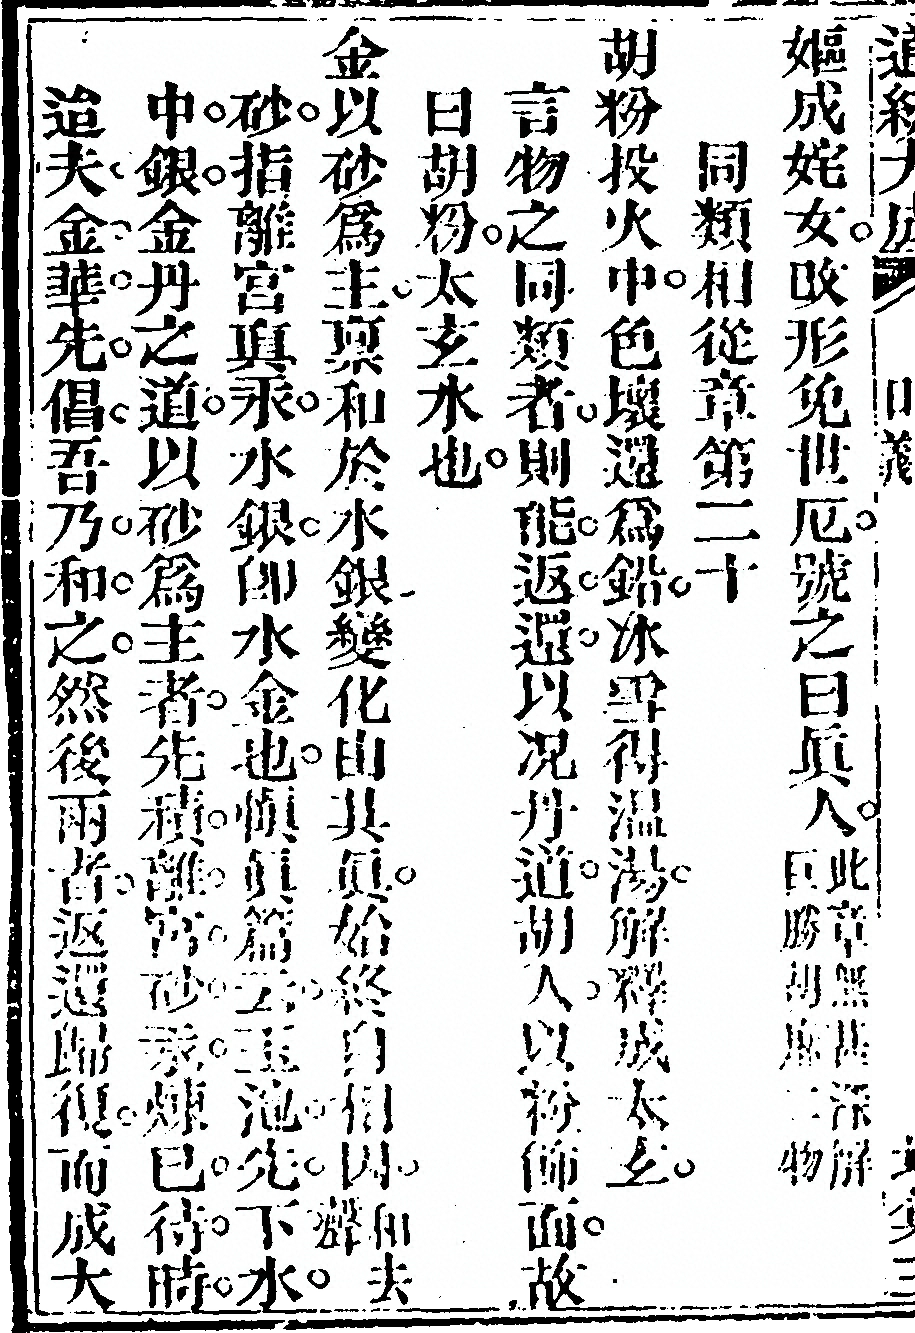 嫗成姹女改形免世厄號之曰眞人此章無甚深解巨勝胡麻二物
同類相從章第二十
胡粉投火中色壞還爲鉛冰雪得温湯解釋成太玄
言物之同類者則能返還以况丹道胡人以粉飾面故
曰胡粉太玄水也
金以砂爲主稟和於水銀變化由其眞始終自相因和去聲
砂指離宮眞汞水銀卽水金也愼眞篇云玉池先下水
中銀金丹之道以砂爲主者先積離宮砂汞煉已待時
迨夫金華先倡吾乃和之然後兩者返還歸復而成大